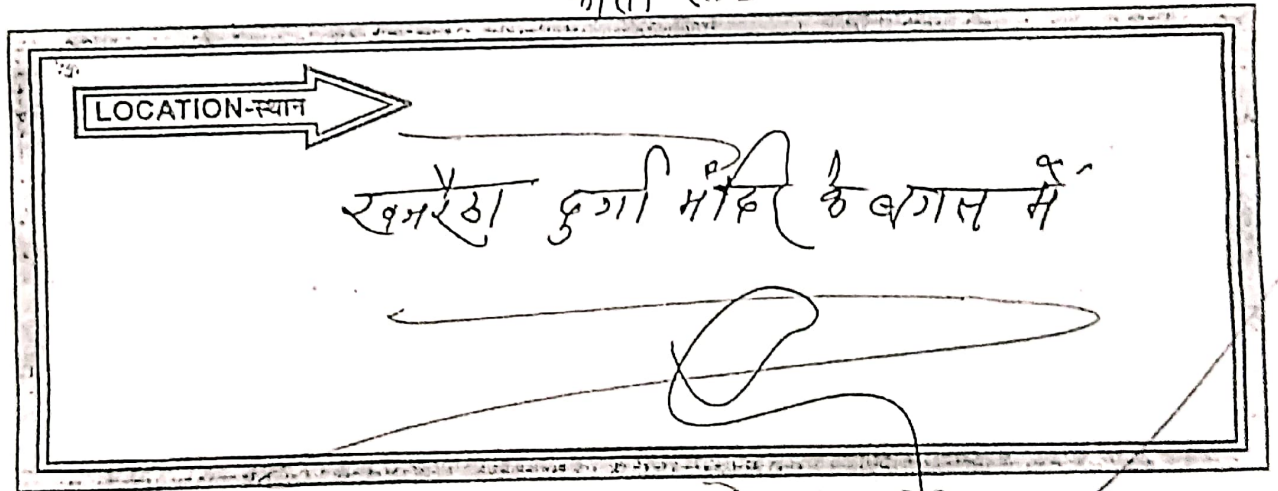 LOCATION-स्थान
खजरैठा दुर्गा मंदिर के बगल में